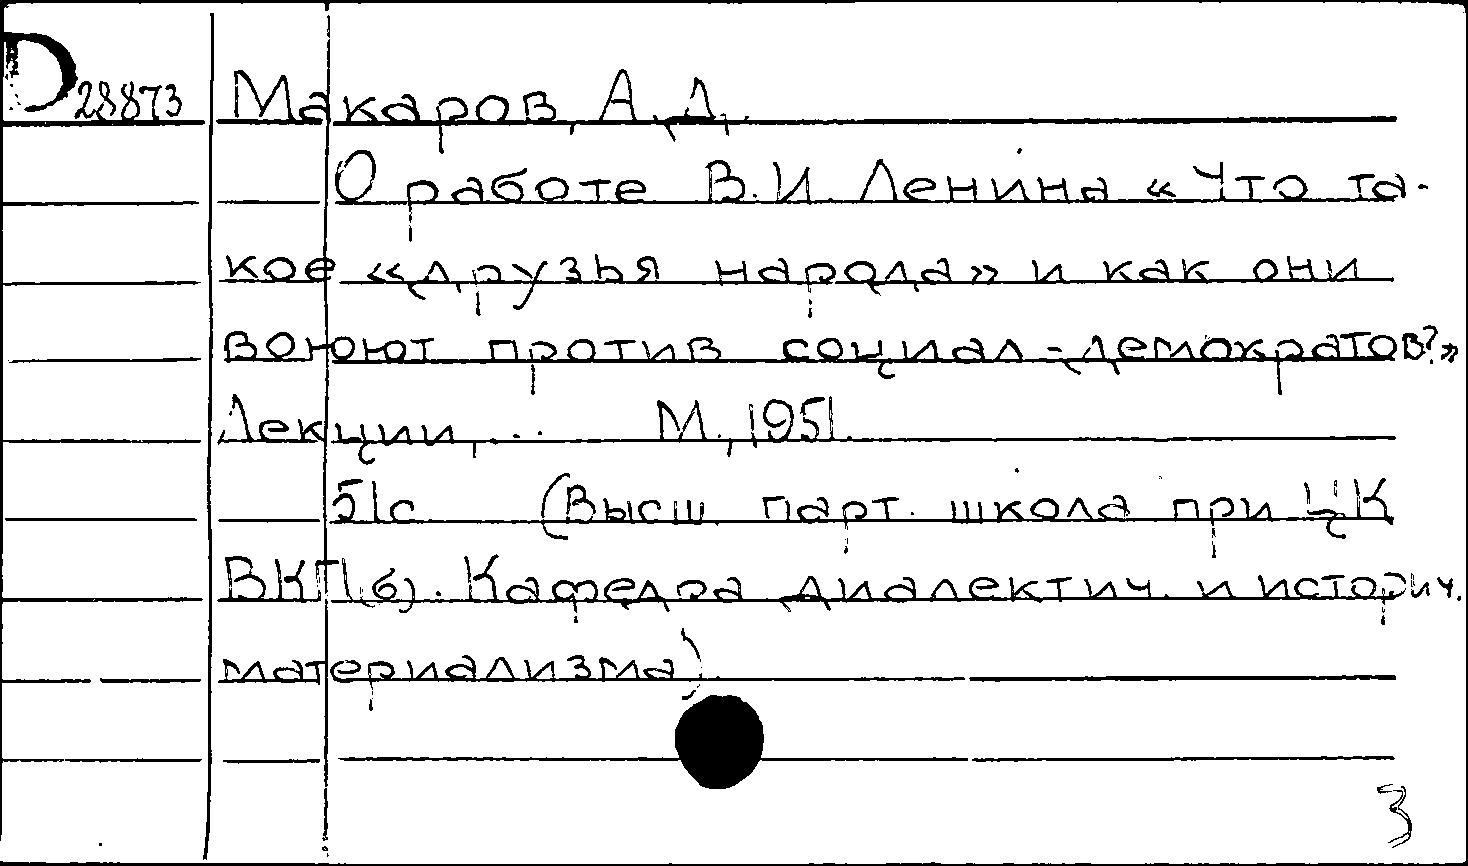 D 28873 Макаров, А.Д.
О работе В.И. Ленина «Что та-
кое «друзья народа» и как они
воюют против социал-демократов?»
Лекции,... М., 1951.
51с (Высш. парт. школа при ЦК
ВКП(б). Кафедра диалектич. и историч.
материализма).
3